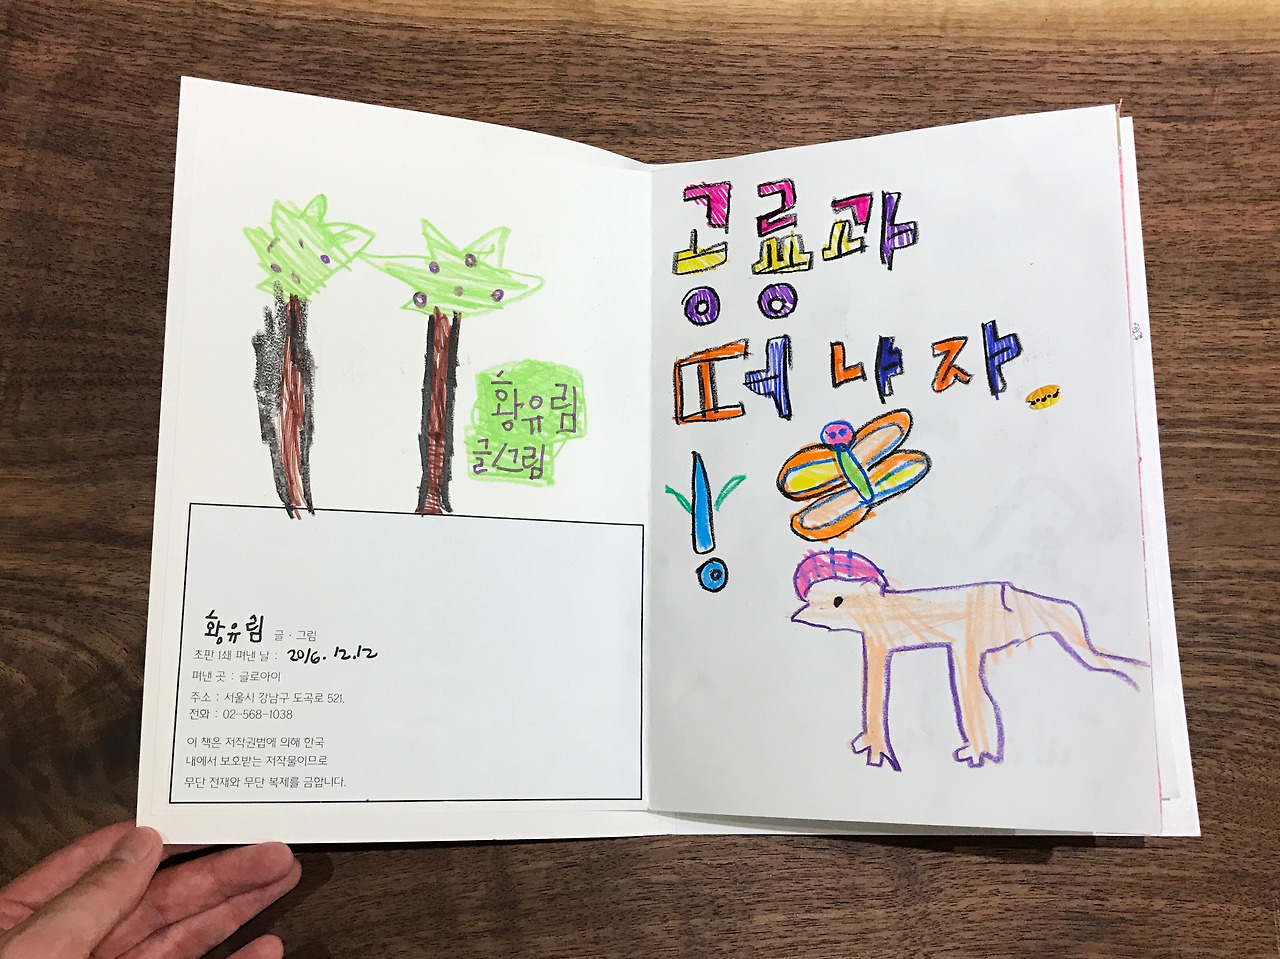 황유림
글/그림
황유림 글·그림
초판 1쇄 펴낸 날 : 2016. 12. 12
펴낸 곳 : 글로아이
주소 : 서울시 강남구 도곡로 521.
전화 : 02-568-1038
이 책은 저작권법에 의해 한국
내에서 보호받는 저작물이므로
무단 전재와 무단 복제를 금합니다.
공룡과
떠나자
!